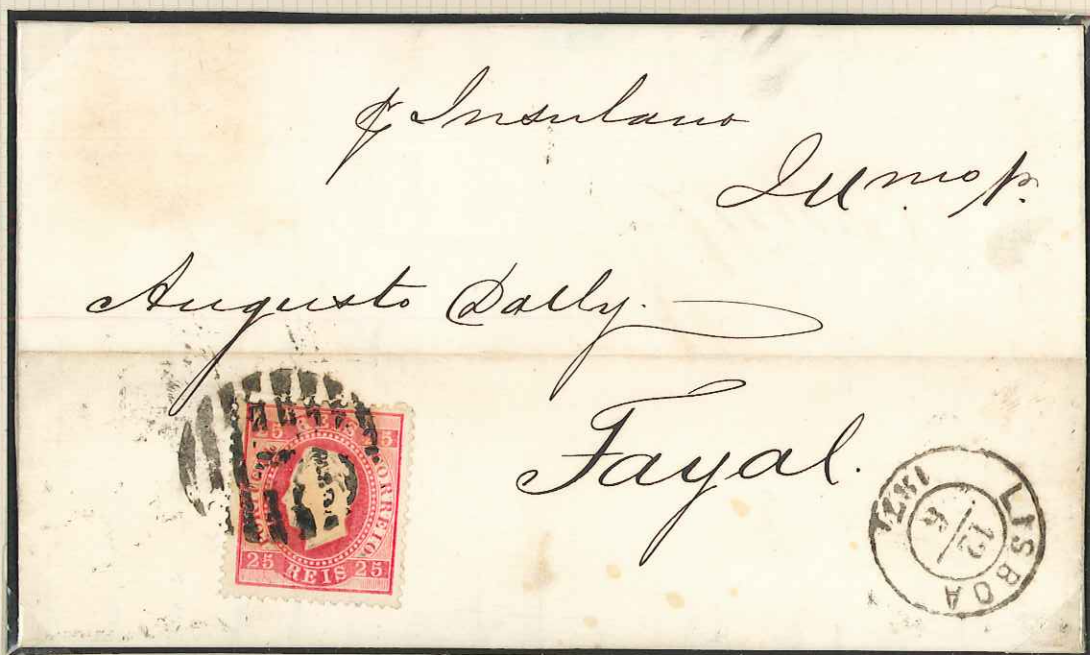 p Insulano
Ill.mo Sr.
Augusto Dolly.
Fayal.
25 REIS 25
CORREIO
25 REIS 25
LISBOA
12
6
187